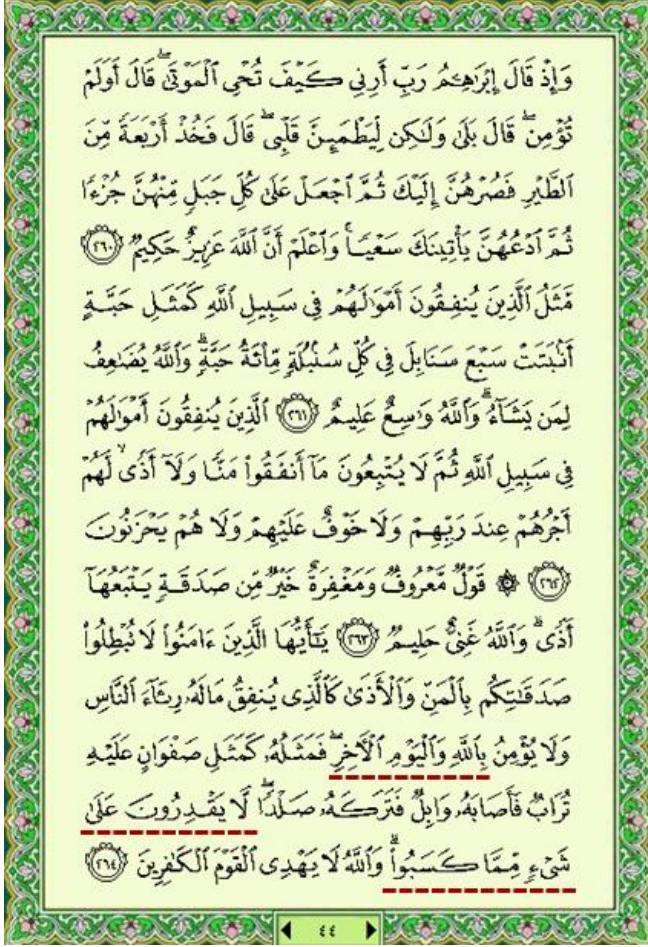 وَإِذْ قَالَ إِبْرَٰهِـۧمُ رَبِّ أَرِنِى كَيْفَ تُحْىِ ٱلْمَوْتَىٰ ۖ قَالَ أَوَلَمْ
تُؤْمِن ۖ قَالَ بَلَىٰ وَلَـٰكِن لِّيَطْمَئِنَّ قَلْبِى ۖ قَالَ فَخُذْ أَرْبَعَةً مِّنَ
ٱلطَّيْرِ فَصُرْهُنَّ إِلَيْكَ ثُمَّ ٱجْعَلْ عَلَىٰ كُلِّ جَبَلٍ مِّنْهُنَّ جُزْءًا
ثُمَّ ٱدْعُهُنَّ يَأْتِينَكَ سَعْيًا ۚ وَٱعْلَمْ أَنَّ ٱللَّهَ عَزِيزٌ حَكِيمٌ ﴿٢٦٠﴾
مَّثَلُ ٱلَّذِينَ يُنفِقُونَ أَمْوَٰلَهُمْ فِى سَبِيلِ ٱللَّهِ كَمَثَلِ حَبَّةٍ
أَنۢبَتَتْ سَبْعَ سَنَابِلَ فِى كُلِّ سُنۢبُلَةٍ مِّا۟ئَةُ حَبَّةٍ ۗ وَٱللَّهُ يُضَـٰعِفُ
لِمَن يَشَآءُ ۗ وَٱللَّهُ وَٰسِعٌ عَلِيمٌ ﴿٢٦١﴾ ٱلَّذِينَ يُنفِقُونَ أَمْوَٰلَهُمْ
فِى سَبِيلِ ٱللَّهِ ثُمَّ لَا يُتْبِعُونَ مَآ أَنفَقُوا۟ مَنًّا وَلَآ أَذًى ۙ لَّهُمْ
أَجْرُهُمْ عِندَ رَبِّهِمْ وَلَا خَوْفٌ عَلَيْهِمْ وَلَا هُمْ يَحْزَنُونَ
﴿٢٦٢﴾ ۞ قَوْلٌ مَّعْرُوفٌ وَمَغْفِرَةٌ خَيْرٌ مِّن صَدَقَةٍ يَتْبَعُهَآ
أَذًى ۗ وَٱللَّهُ غَنِىٌّ حَلِيمٌ ﴿٢٦٣﴾ يَـٰٓأَيُّهَا ٱلَّذِينَ ءَامَنُوا۟ لَا تُبْطِلُوا۟
صَدَقَـٰتِكُم بِٱلْمَنِّ وَٱلْأَذَىٰ كَٱلَّذِى يُنفِقُ مَالَهُۥ رِئَآءَ ٱلنَّاسِ
وَلَا يُؤْمِنُ بِٱللَّهِ وَٱلْيَوْمِ ٱلْـَٔاخِرِ ۖ فَمَثَلُهُۥ كَمَثَلِ صَفْوَانٍ عَلَيْهِ
تُرَابٌ فَأَصَابَهُۥ وَابِلٌ فَتَرَكَهُۥ صَلْدًا ۖ لَّا يَقْدِرُونَ عَلَىٰ
شَىْءٍ مِّمَّا كَسَبُوا۟ ۗ وَٱللَّهُ لَا يَهْدِى ٱلْقَوْمَ ٱلْكَـٰفِرِينَ ﴿٢٦٤﴾
٤٤